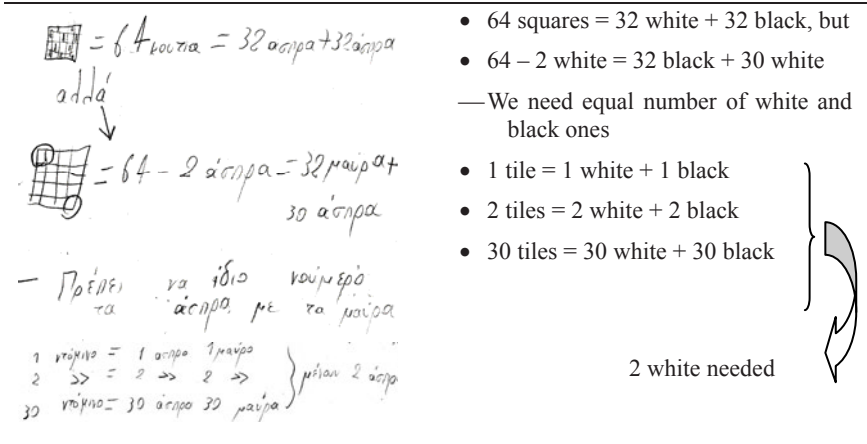 = 64 κουτια = 32 ασπρα + 32 άσπρα
αλλά
= 64 - 2 άσπρα = 32 μαύρα +
30 άσπρα
— Πρέπει να ίδιο νούμερο
τα άσπρα με τα μαύρα
1 ντόμινο = 1 ασπρο 1 μαύρο
2 >> = 2 >> 2 >>
30 ντόμινο = 30 άσπρο 30 μαύρα
μέναν 2 άσπρ
• 64 squares = 32 white + 32 black, but
• 64 – 2 white = 32 black + 30 white
— We need equal number of white and
black ones
• 1 tile = 1 white + 1 black
• 2 tiles = 2 white + 2 black
• 30 tiles = 30 white + 30 black
2 white needed